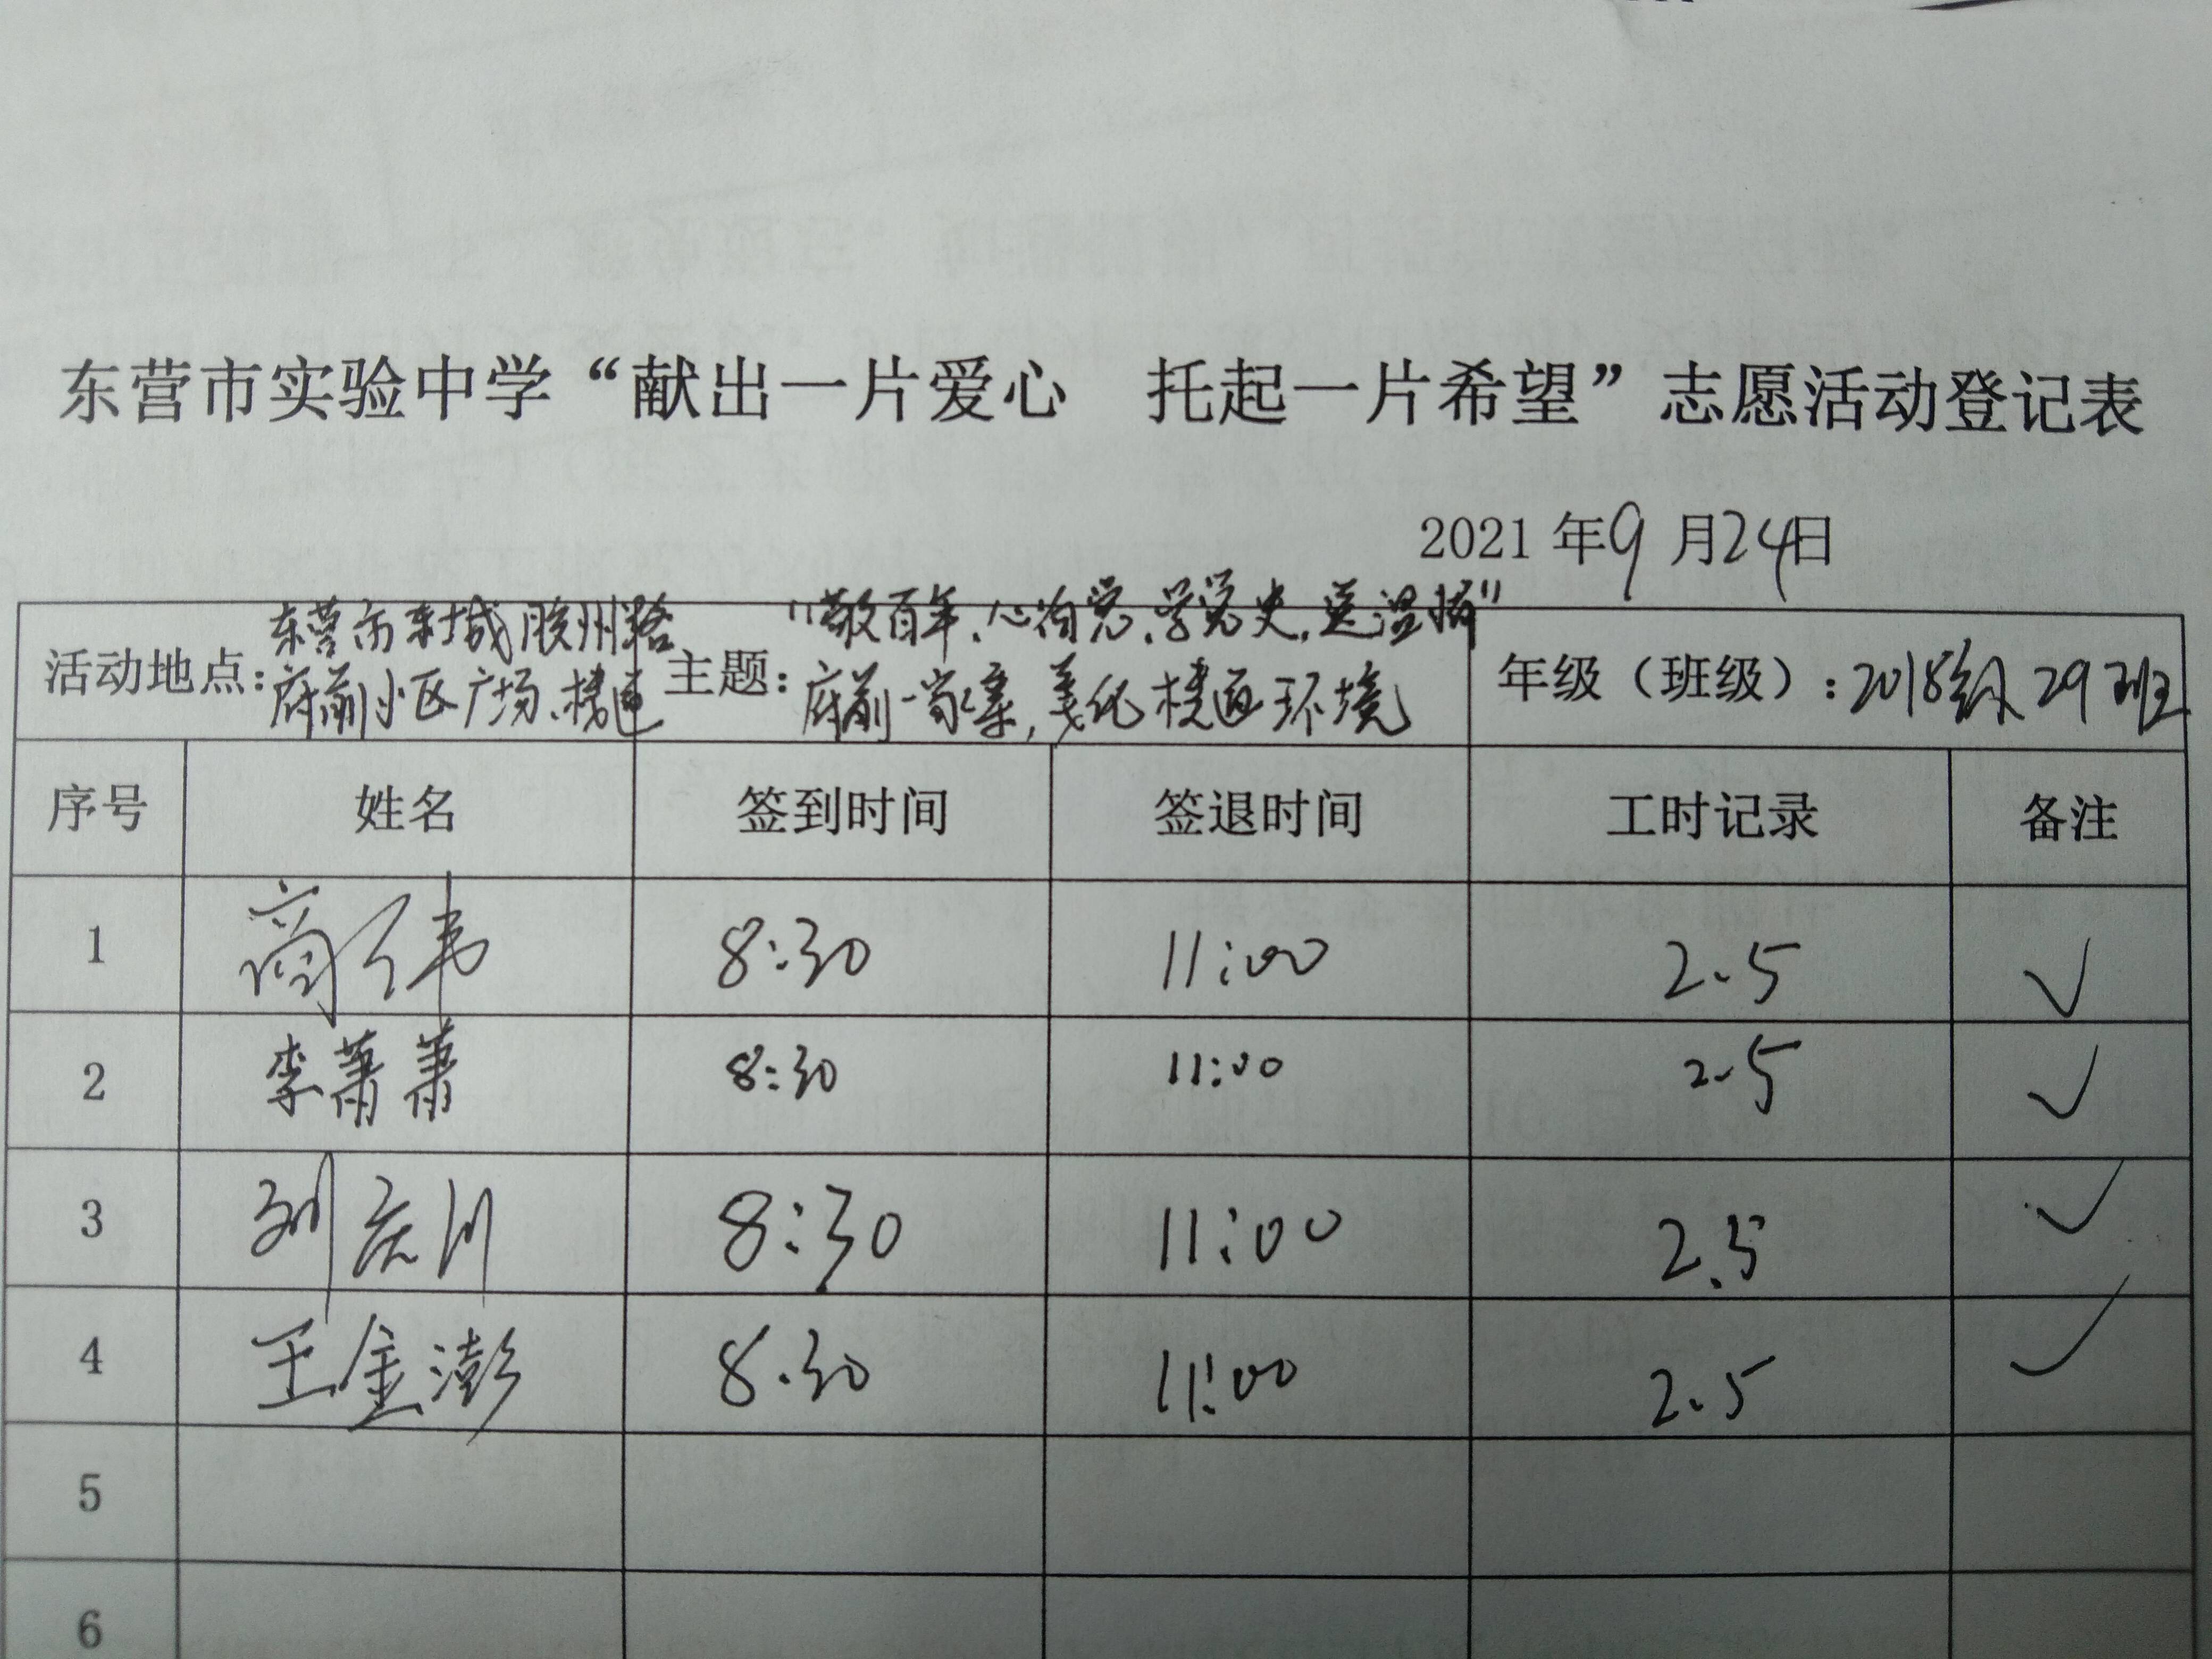 东营市实验中学“献出一片爱心 托起一片希望”志愿活动登记表
2021年9月24日
活动地点：东营市东城胶州路
府前小区广场、楼道
主题：“敬百年、心向党、学党史、送温情”
府前一家亲，美化楼道环境
年级（班级）：2018级29班
序号 姓名 签到时间 签退时间 工时记录 备注
1 高伟 8:30 11:00 2.5 √
2 李萧萧 8:30 11:00 2.5 √
3 刘庆川 8:30 11:00 2.5 √
4 王金澎 8.30 11:00 2.5 √
5
6